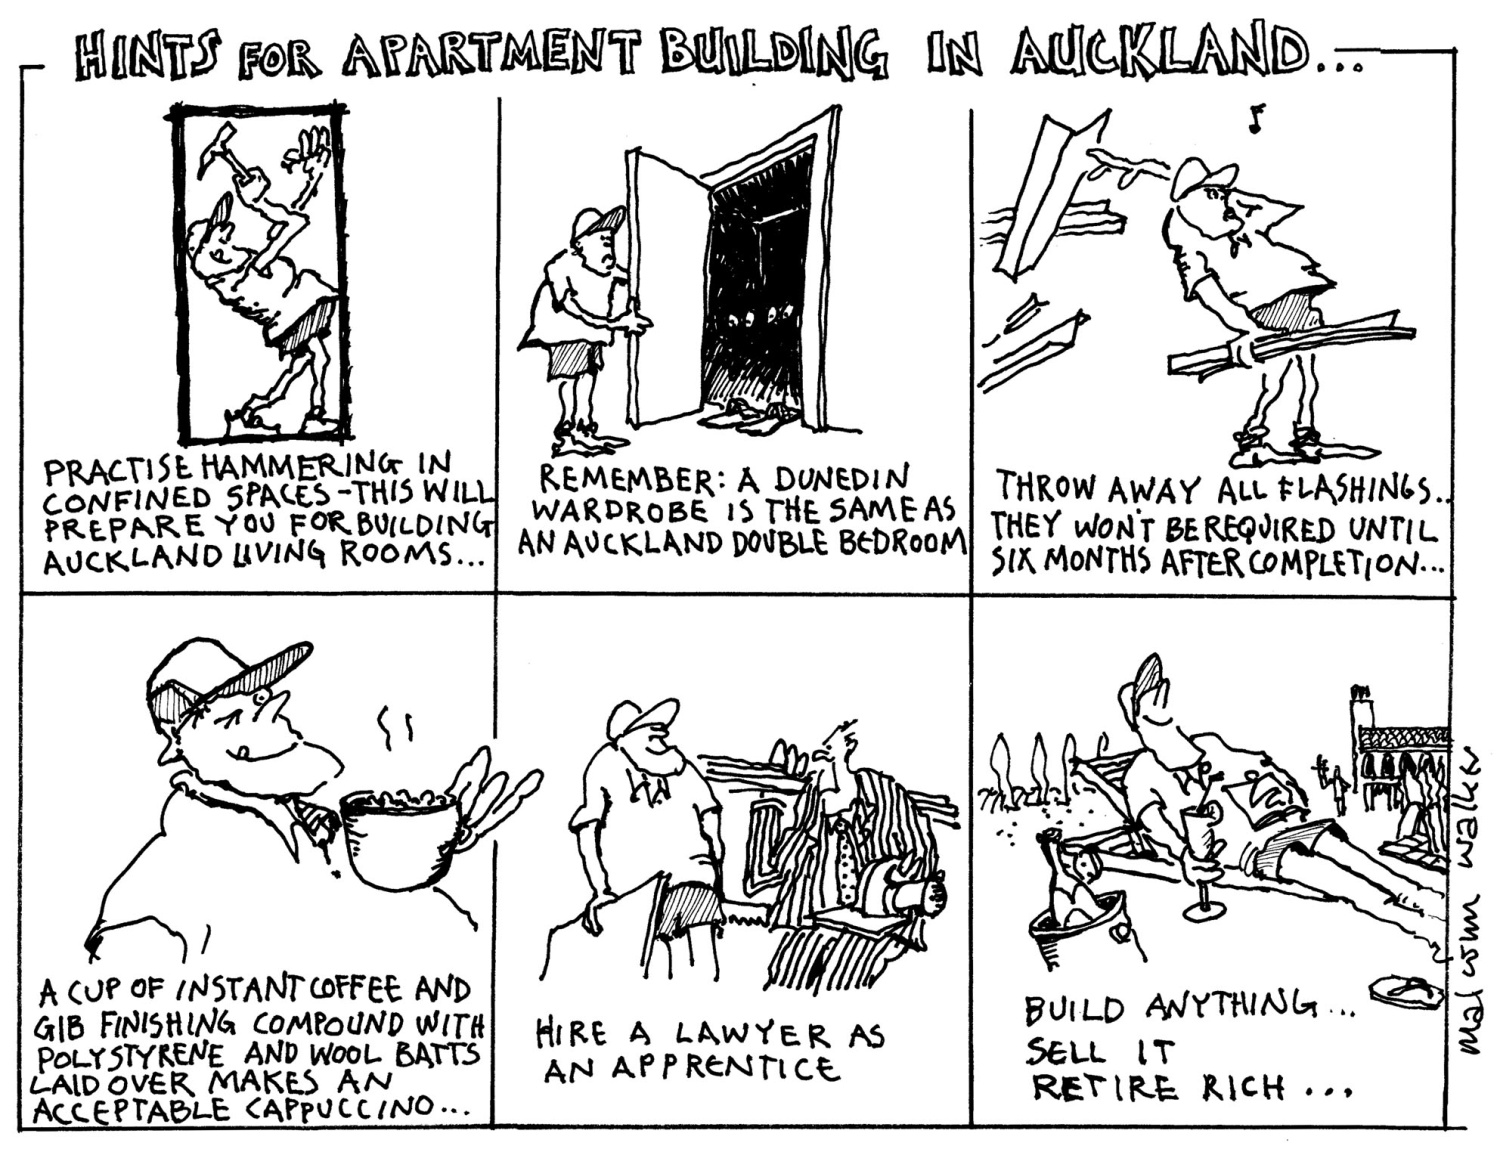 HINTS FOR APARTMENT BUILDING IN AUCKLAND...
PRACTISE HAMMERING IN
CONFINED SPACES - THIS WILL
PREPARE YOU FOR BUILDING
AUCKLAND LIVING ROOMS...
REMEMBER: A DUNEDIN
WARDROBE IS THE SAME AS
AN AUCKLAND DOUBLE BEDROOM
THROW AWAY ALL FLASHINGS..
THEY WON'T BE REQUIRED UNTIL
SIX MONTHS AFTER COMPLETION...
A CUP OF INSTANT COFFEE AND
GIB FINISHING COMPOUND WITH
POLYSTYRENE AND WOOL BATTS
LAID OVER MAKES AN
ACCEPTABLE CAPPUCCINO...
HIRE A LAWYER AS
AN APPRENTICE
BUILD ANYTHING...
SELL IT
RETIRE RICH...
malcolm walker